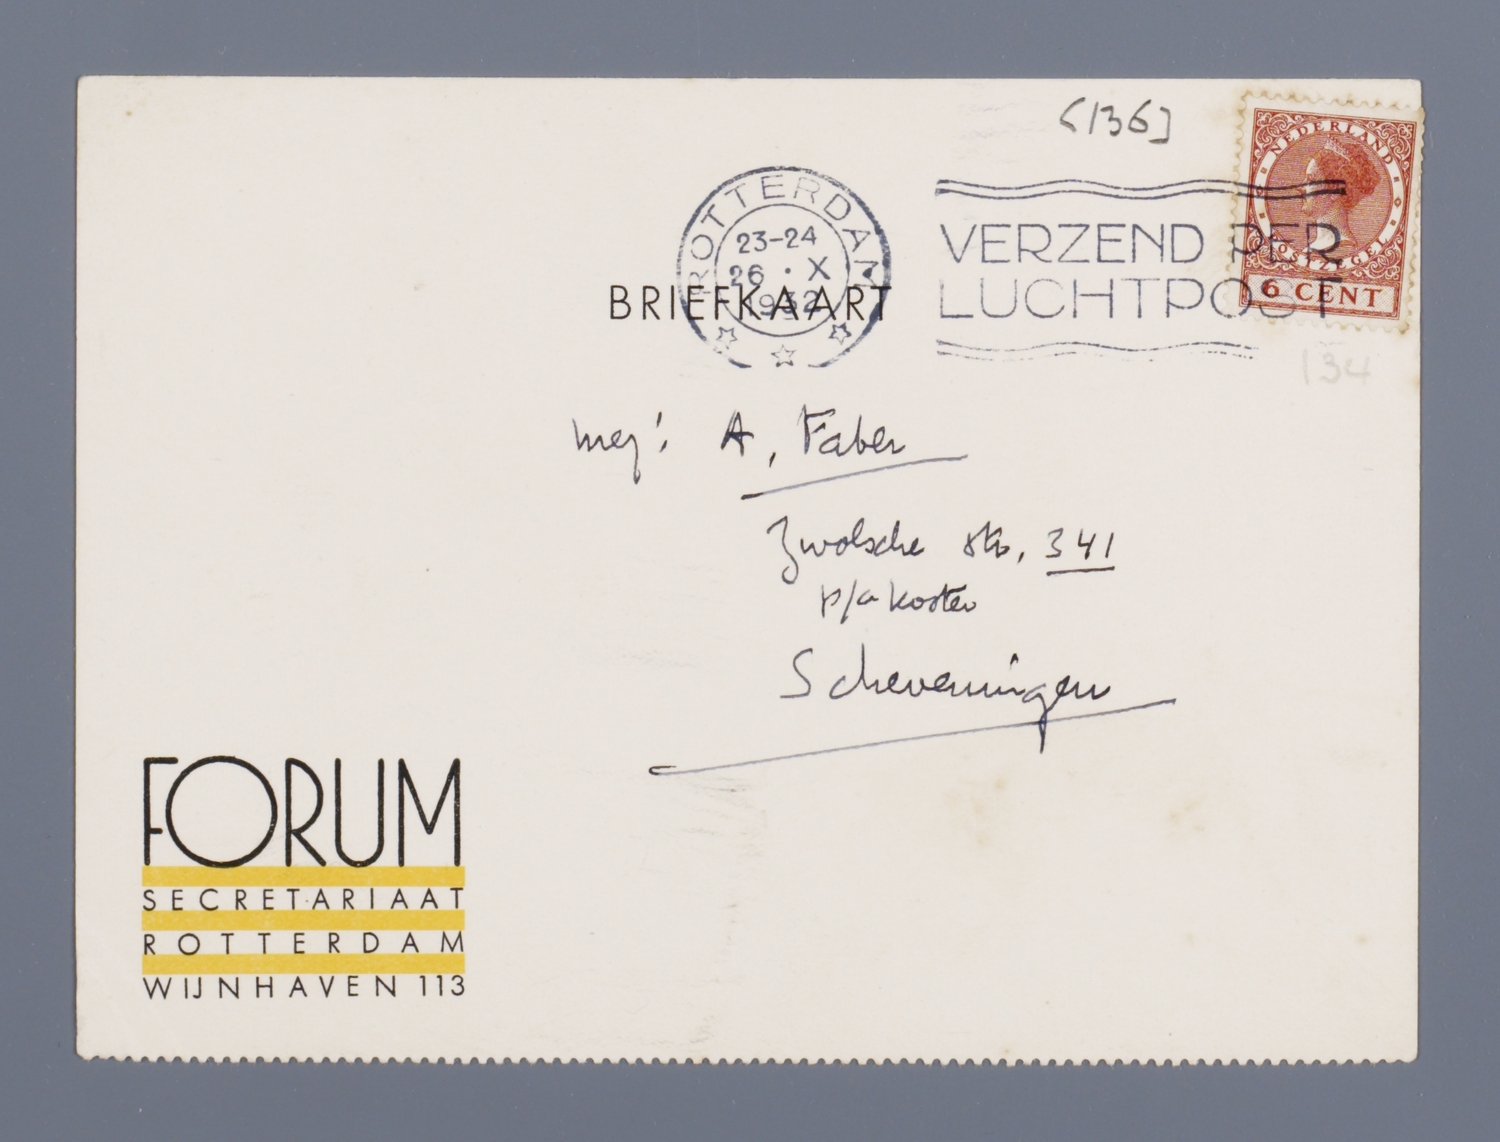 [136]
NEDERLAND
POSTZEGEL
6 CENT
ROTTERDAM
23-24
26 · X
1932
VERZEND PER
LUCHTPOST
BRIEFKAART
134
mej! A, Faber
Zwolsche str, 341
p/a Koster
Scheveningen
FORUM
SECRETARIAAT
ROTTERDAM
WIJNHAVEN 113